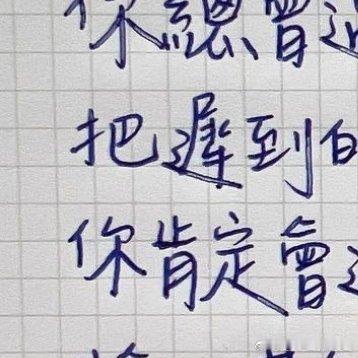 你總會
把遲到
你肯定會